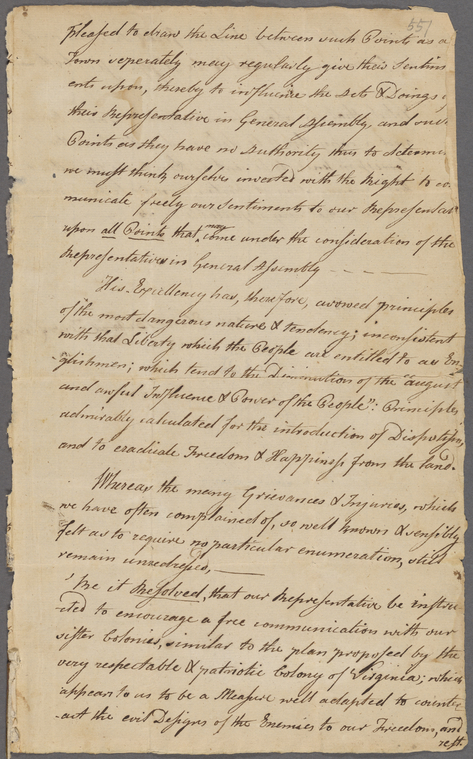 55
pleased to draw the Line between such Points as a
Town seperately may regularly give their Sentim
ents upon, thereby to influence the Acts & Doings
their Representative in General Assembly, and
Points as they have no Authority thus to determi
we must think ourselves invested with the Right to co
municate freely our Sentiments to our Representat
upon all Points that may come under the consideration of the
Representatives in General Assembly - - - -
His Excellency has, therefore, avowed principles
of the most dangerous nature & tendency; inconsistent
with that Liberty which the People are entitled to as En
-glishmen; which tend to the Diminution of the "august
and awful Influence & Power of the People": Principles
admirably calculated for the introduction of Dispotism,
and to eradicate Freedom & Happiness from the land.
Whereas the many Grievances & Injuries, which
we have often complained of, so well known & sensibly
felt as to require no particular enumeration, still
remain unredressed, —
Be it Resolved, that our Representative be instruc
-ted to encourage a free communication with our
sister Colonies, similar to the plan proposed by the
very respectable & patriotic Colony of Virginia; which
appears to us to be a Measure well adapted to counter
-act the evil Designs of the Enemies to our Freedom, and
rest